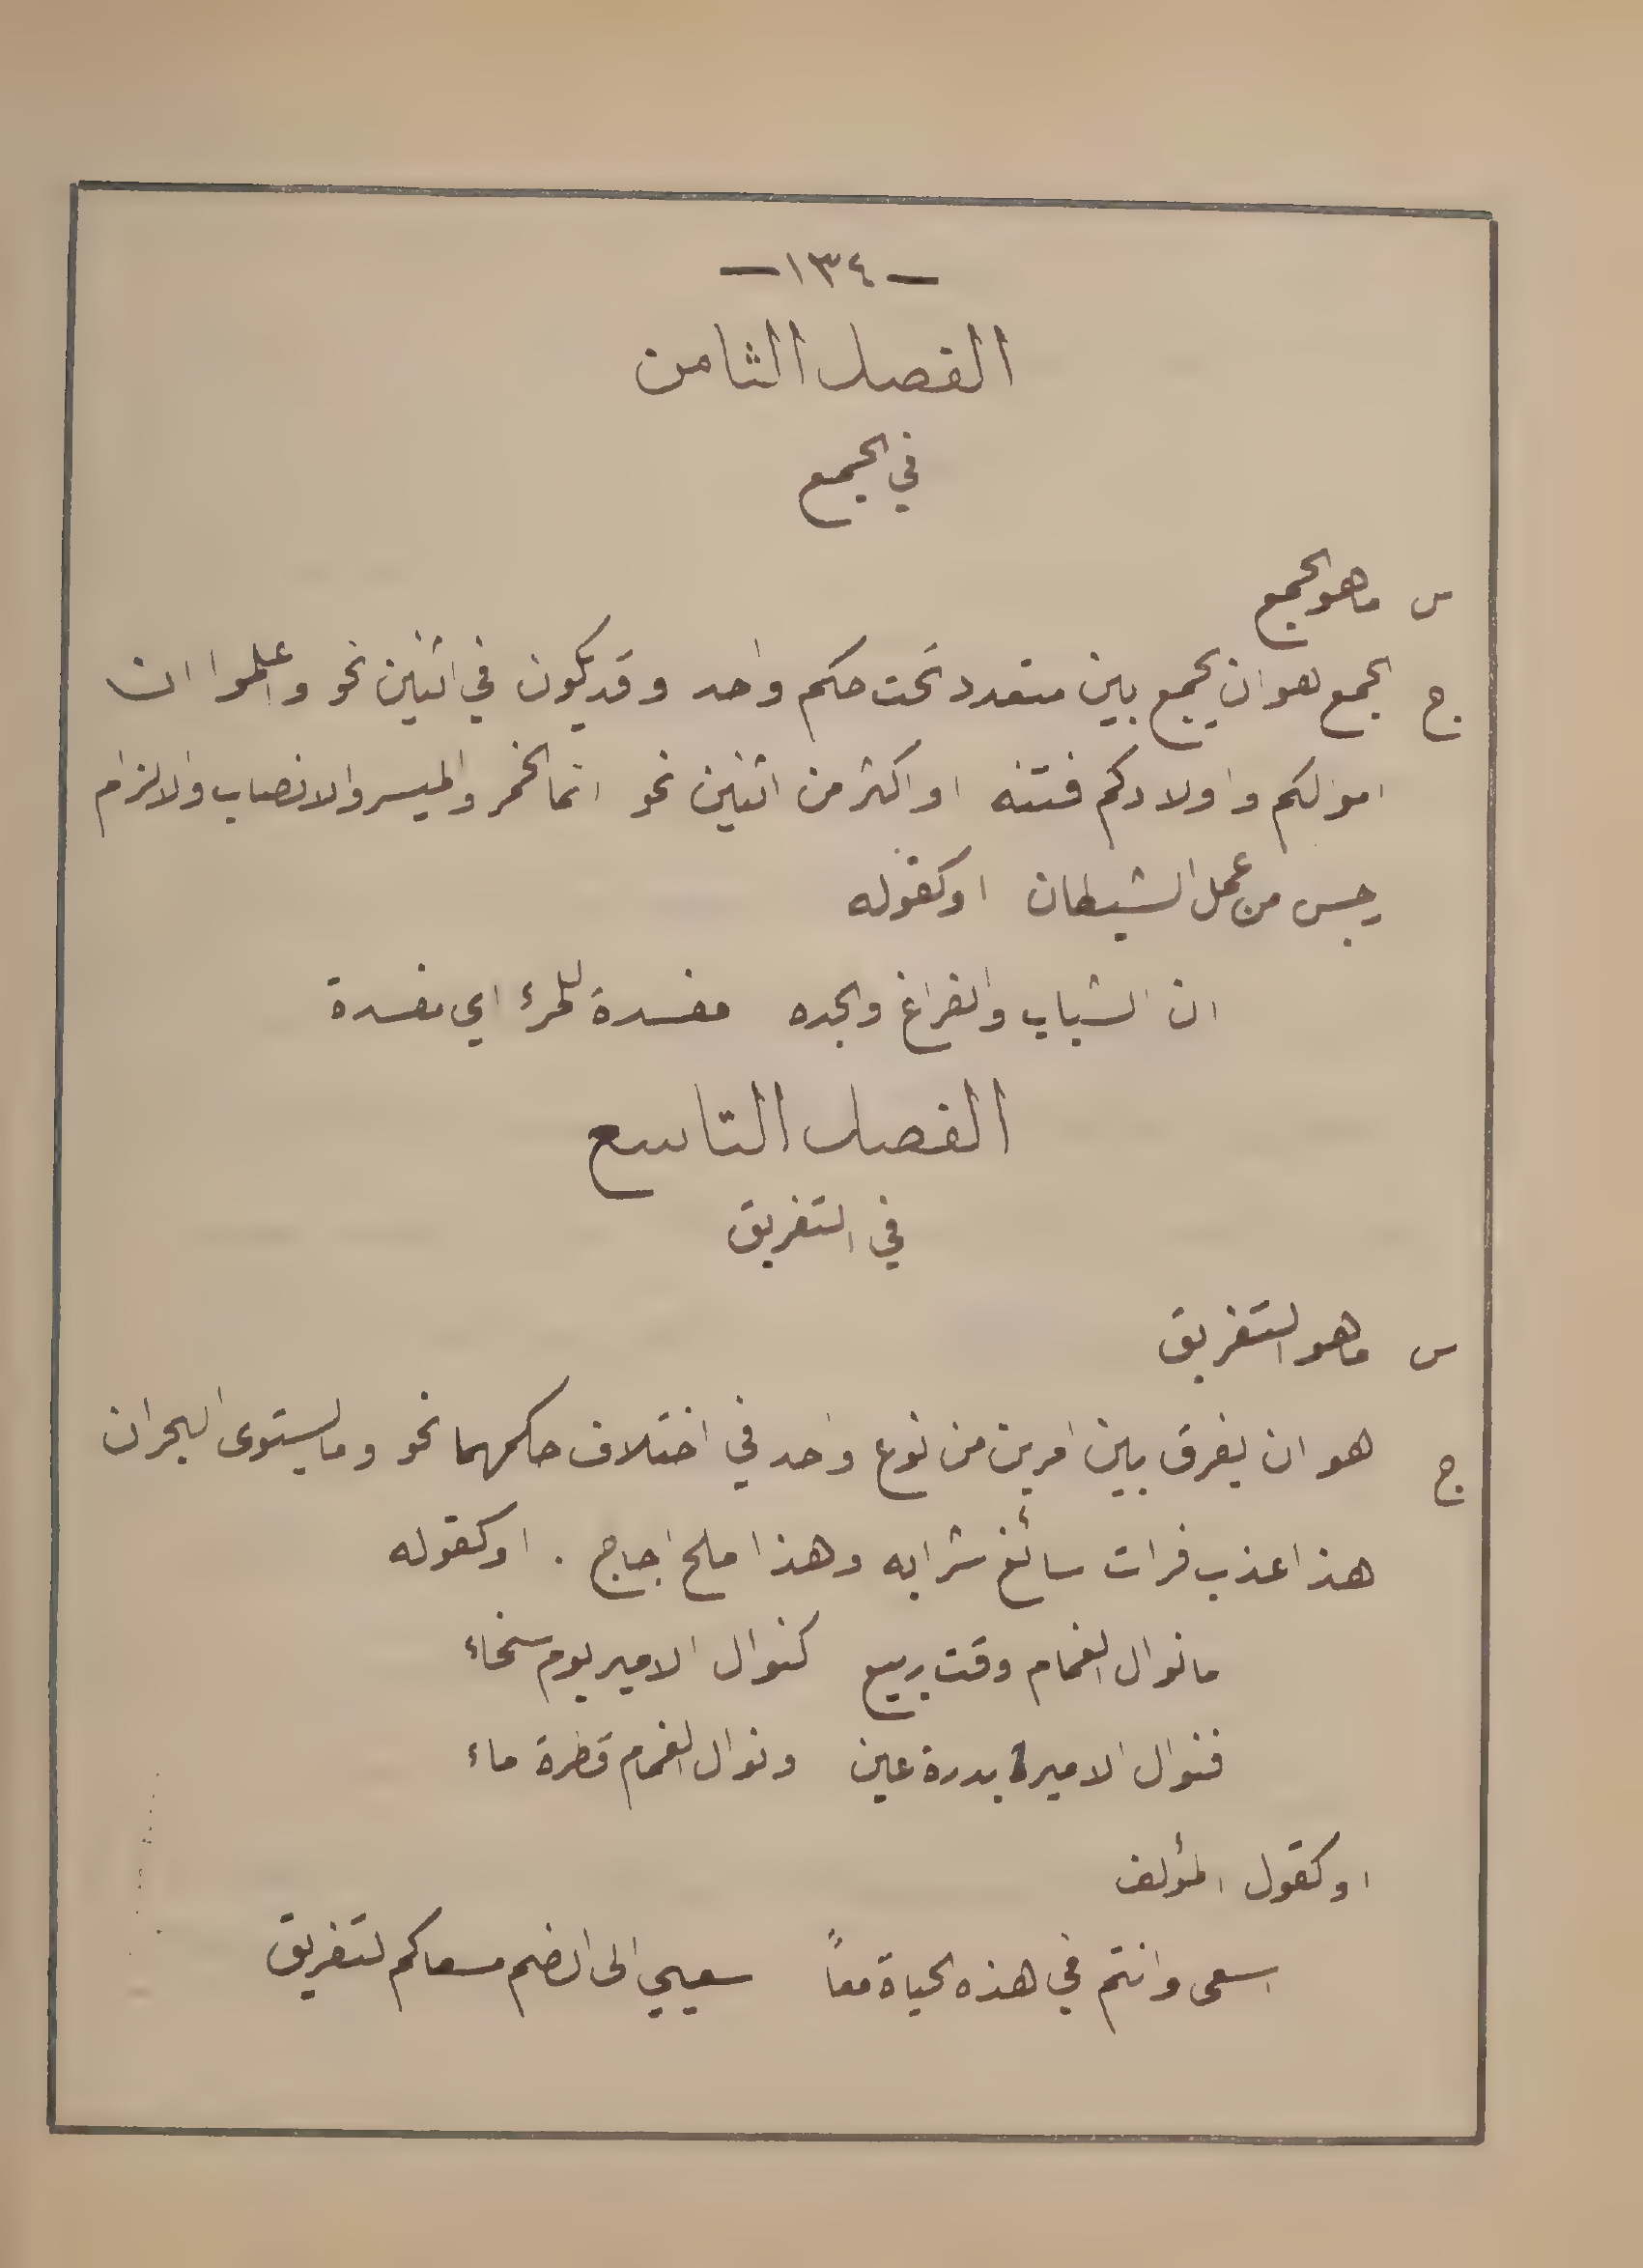 — ١٣٤ —
الفصل الثامن
في الجمع
س ما هو الجمع
ج الجمع هو ان يجمع بين متعدد تحت حكم واحد وقد يكون في اثنين نحو واعلموا ان
اموالكم واولادكم فتنه او اكثر من اثنين نحو انما الخمر والميسر والانصاب والالزام
رجس من عمل الشيطان او كقوله
ان الشباب والفراغ والجده مفسدة للمرء اي مفسدة
الفصل التاسع
في التفريق
س ما هو التفريق
ج هو ان يفرق بين امرين من نوع واحد في اختلاف حكمهما نحو وما يستوى البحران
هذا عذب فرات سائغ شرابه وهذا ملح اجاج . او كقوله
ما نوال الغمام وقت ربيع كنوال الامير يوم سخاء
فنوال الامير بدرة عين ونوال الغمام قطرة ماء
او كقول المؤلف
اسعى وانتم في هذه الحياة معاً سعيي الى الضم مسعاكم لتفريق